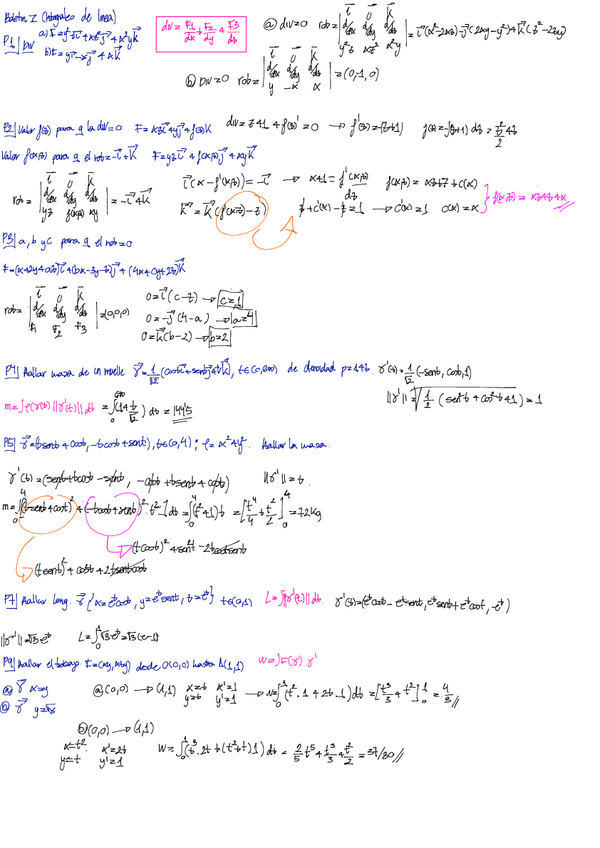 Boletín Z (Integrales de línea)
P1| DIV a) F=y²z i + xz² j + x²y k
b) F= y i - x j + x k
div = F1/dx + F2/dy + F3/dz
a) div=0 rot= | i J k | = i(x²-2xz) - j(2xy-y²) + k(z²-2zy)
d/dx d/dy d/dz
y²z xz² x²y
b) DIV=0 rot= | i J k | = (0,-1,0)
d/dx d/dy d/dz
y -x x
P2| Valor f(z) para q la div=0 F= xz i + y j + f(z) k div= z+1+f(z)' = 0 → f'(z)=-(z+1) f(z)=-∫(z+1) dz = z²/2 + z
Valor f(x,z) para q el rot=-i+k F= yz i + f(x,z) j + xy k
rot= | i J k | = -i+k
d/dx d/dy d/dz
yz f(x,z) xy
i (x - f'(x,z)) = -i → x+1= f'(x,z)/dz f(x,z) = xz+z + c(x)
k = k (f'(x,z) - z) z+c'(x)-z=1 → c'(x)=1 c(x)=x } f(x,z) = xz+z+x
P3| a, b y c para q el rot=0
F=(x+2y+az) i + (bx-3y-z) j + (4x+cy+2z) k
rot= | i J k | = (0,0,0)
d/dx d/dy d/dz
F1 F2 F3
0= i (c-z) → c=1
0=-j (4-a) → a=4
0= k (b-2) → b=2
P4| Hallar masa de un muelle r= 1/√2 (cost i + sent j + t k), t∈(0, de densidad ρ=1+z. r'(t)= 1/√2 (-sent, cost, 1)
m=∫ρ(r(t)) ||r'(t)|| dt = ∫(1+ t/√2) dt = 144'5
||r'|| = √(1/2 (sen²t + cos²t +1)) = 1
P5| r=(tsent+cost, -tcost+sent), t∈(0,4); ρ=x²+y². Hallar la masa.
r'(t)=(sent+tcost-sent, -cost+tsent+cost) ||r'||=t.
m=∫[(tsent+cost)² + (-tcost+sent)²·t²] dt = ∫(t²+1)t = [t⁴/4 + t²/2] = 72kg
(tcost)² + sen²t - 2tcostsent
(tsent)² + cos²t + 2tsentcost
P7| Hallar long. r { x=eᵗcost, y=eᵗsent, z=eᵗ} t∈(0,1) L=∫||r'(t)|| dt. r'(t)=(eᵗcost - eᵗsent, eᵗsent+eᵗcost, -eᵗ)
||r'||=√3 eᵗ L=∫√3·eᵗ=√3(e-1)
P9| Hallar el trabajo. F=(xy, x+y) desde O(0,0) hasta A(1,1) W=∫F(r)·r'
a) r x=y a) (0,0) → (1,1) x=t x'=1 y=t y'=1 → W=∫(t²·1 + 2t·1) dt = [t³/3 + t²] = 4/3
b) r y=√x
b) (0,0) → (1,1)
x=t² x'=2t
y=t y'=1
W=∫(t³·2t + (t²+t)1) dt = 2/5 t⁵ + t³/3 + t²/2 = 37/30